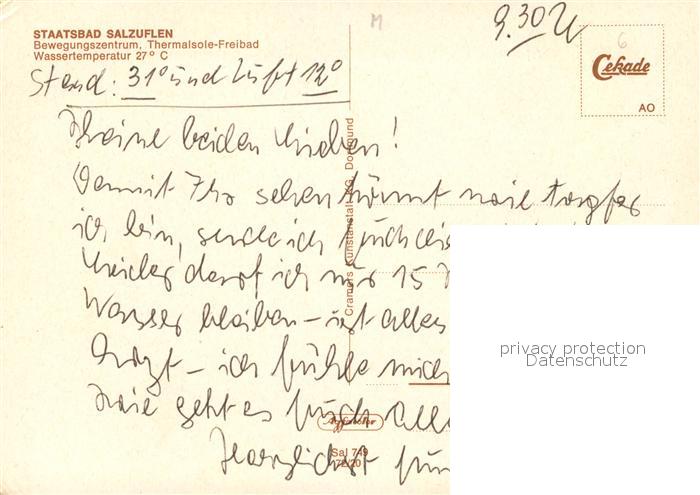 9.30 U
STAATSBAD SALZUFLEN
Bewegungszentrum, Thermalsole-Freibad
Wassertemperatur 27° C
Stand: 31° und Luft 12°
Cekade
AO
Meine beiden Lieben!
Damit Ihr sehen könnt wie tapfer
ich bin, sende ich Euch
Leider darf ich nur 15
Wasser bleiben – ist alles
Arzt – ich fühle mich
Wie geht es Euch Alle
Herzlichst
Cramers Kunstanstalt KG, Dortmund
Sal 749
72/20
privacy protection
Datenschutz